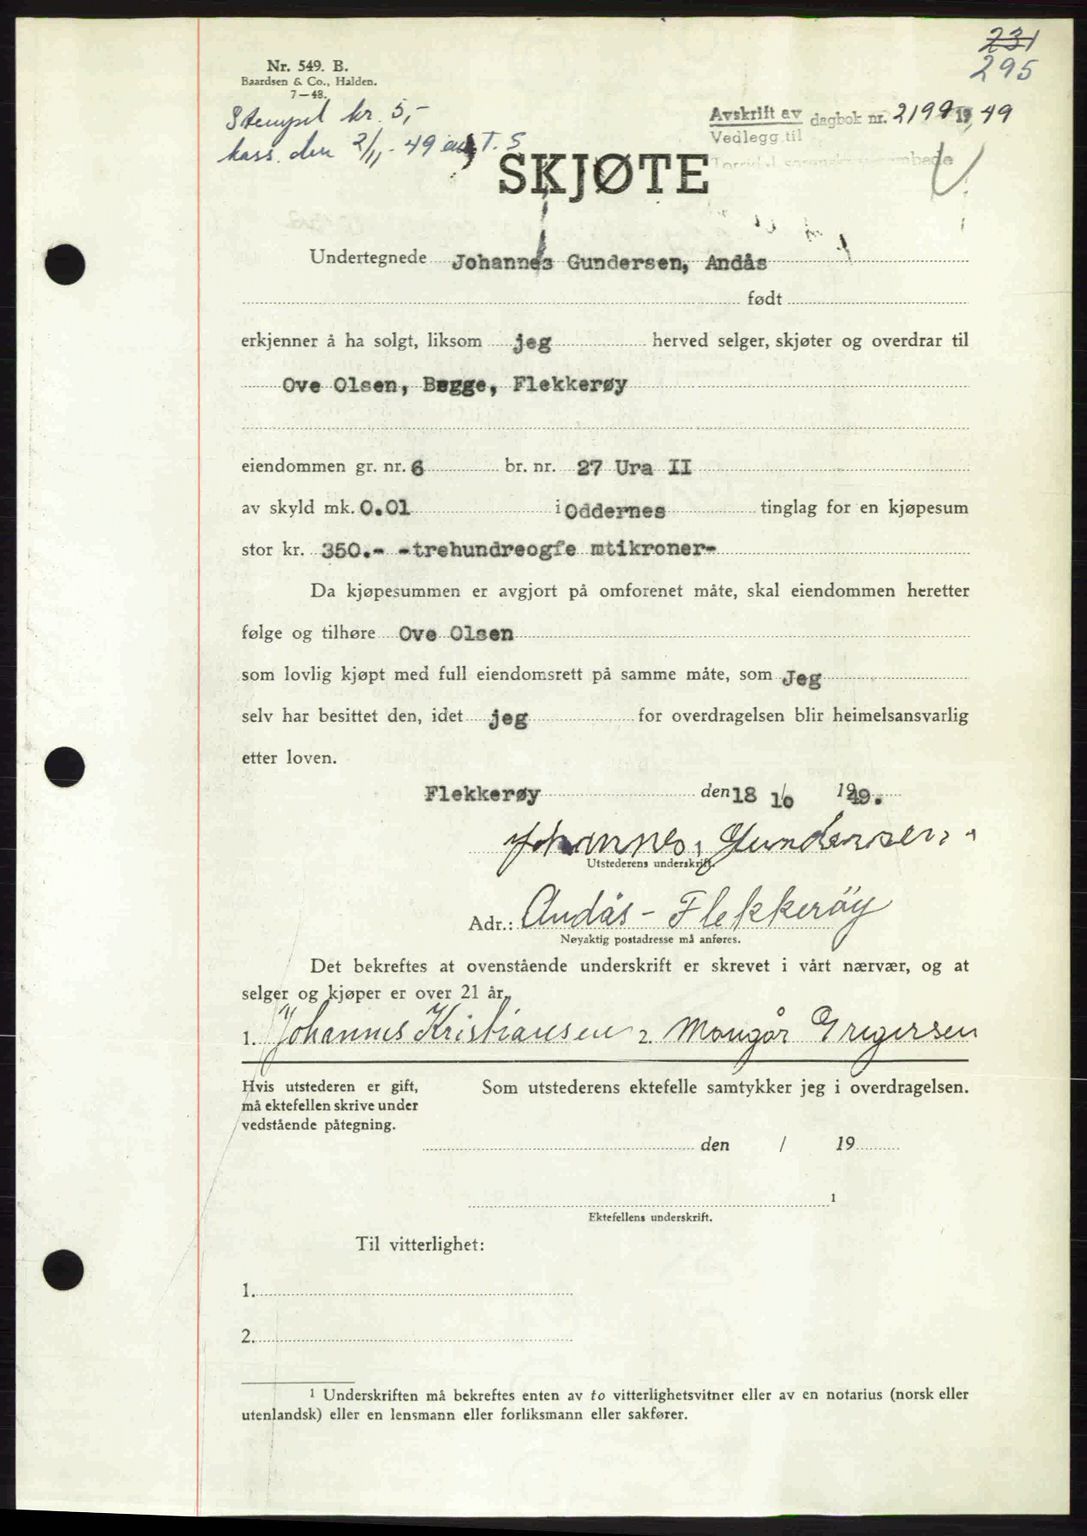 231
295
Nr. 549. B.
Baardsen & Co., Halden.
7—48.
Stempel kr. 5,-
kass. den 2/11-49 T. S
Avskrift av dagbok nr. 2199 1949
Vedlegg til
SKJØTE
Undertegnede Johannes Gundersen, Andås
født
erkjenner å ha solgt, liksom jeg herved selger, skjøter og overdrar til
Ove Olsen, Bøgge, Flekkerøy
eiendommen gr. nr. 6 br. nr. 27 Ura II
av skyld mk. 0.01 i Oddernes tinglag for en kjøpesum
stor kr. 350.- -trehundreogfe mtikroner-
Da kjøpesummen er avgjort på omforenet måte, skal eiendommen heretter
følge og tilhøre Ove Olsen
som lovlig kjøpt med full eiendomsrett på samme måte, som Jeg
selv har besittet den, idet jeg for overdragelsen blir heimelsansvarlig
etter loven.
Flekkerøy den 18 / 10 1949.
Johannes Gundersen
Utstederens underskrift.
Adr.: Andås - Flekkerøy
Nøyaktig postadresse må anføres.
Det bekreftes at ovenstående underskrift er skrevet i vårt nærvær, og at
selger og kjøper er over 21 år.
1. Johannes Kristiansen 2. Mangår Gregersen
Hvis utstederen er gift,
må ektefellen skrive under
vedstående påtegning.
Som utstederens ektefelle samtykker jeg i overdragelsen.
den / 19
1
Ektefellens underskrift.
Til vitterlighet:
1.
2.
1 Underskriften må bekreftes enten av to vitterlighetsvitner eller av en notarius (norsk eller
utenlandsk) eller en lensmann eller forliksmann eller sakfører.